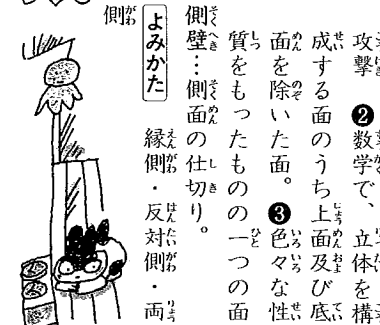 攻撃 ❷数学で、立体を構
成する面のうち上面及び底
面を除いた面。❸色々な性
質をもったものの一つの面
側壁…側面の仕切り。
よみかた 縁側・反対側・両
側